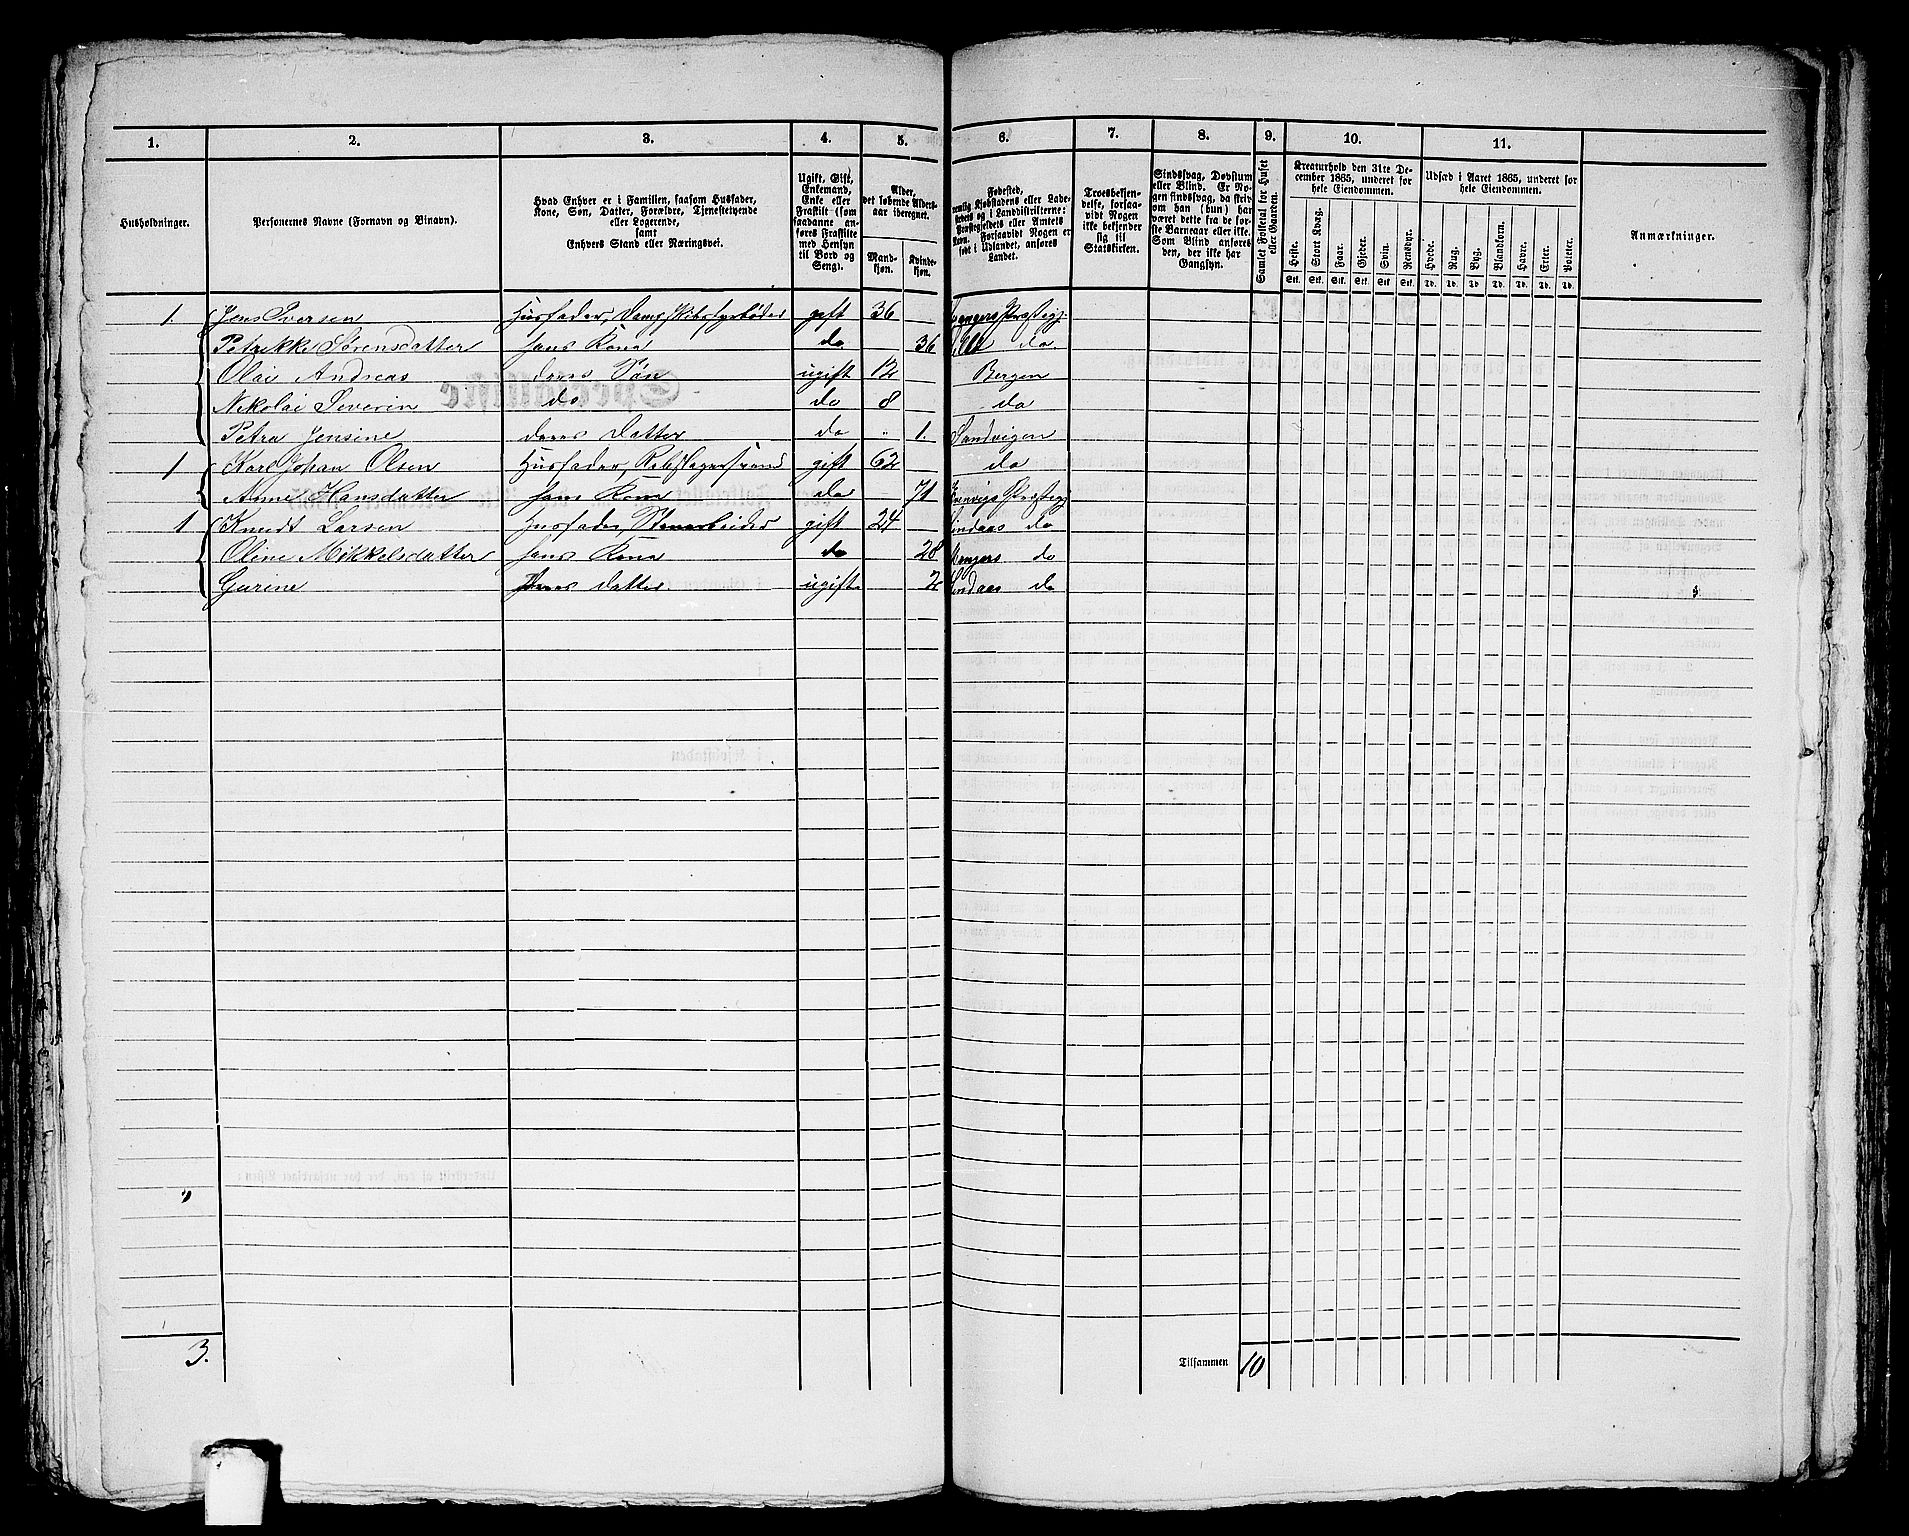 1. 2. 3. 4. 5. 6. 7. 8. 9. 10. 11.
Husholdninger.
Personernes Navne (Fornavn og Binavn).
Hvad Enhver er i Familien, saasom Husfader,
Kone, Søn, Datter, Forældre, Tjenestetyende
eller Logerende,
samt
Enhvers Stand eller Næringsvei.
Ugift, Gift,
Enkemand,
Enke eller
Fraskilt (som
saadanne an-
føres Fraskilte
med Hensyn
til Bord og
Seng).
Alder,
det løbende Alders-
aar iberegnet.
Mand-
kjøn.
Kvinde-
kjøn.
Fødested,
nemlig Kjøbstadens eller Lade-
stedets og i Landdistrikterne:
Præstegjeldets eller Amtets
Navn. Forsaavidt Nogen er
født i Udlandet, anføres
Landet.
Troesbekjen-
delse, forsaa-
vidt Nogen
ikke bekjender
sig til
Statskirken.
Sindssvag, Døvstum
eller Blind. Er No-
gen sindssvag, da skriv
om han (hun) har
været dette fra de før-
ste Barneaar eller ikke.
Som Blind anføres
den, der ikke har
Gangsyn.
Samlet Folketal for Huset
eller Gaarden.
Kreaturhold den 31te De-
cember 1865, underet for
hele Eiendommen.
Heste. Stort Kvæg. Faar. Gjeder. Svin. Rensdyr.
Stk. Stk. Stk. Stk. Stk. Stk.
Udsæd i Aaret 1865, underet for
hele Eiendommen.
Hvede. Rug. Byg. Blandkorn. Havre. Erter. Poteter.
Td. Td. Td. Td. Td. Td. Td.
Anmærkninger.
1. Jens Iversen Husfader, Dampskibsfyrbøder gift 36 Præstegj.
Petrikke Sørensdatter hans Kone do 36 do
Olai Andreas deres Søn ugift 12 Bergen
Nikolai Severin do do 8 do
Petra Jensine deres Datter do " 1. Sandvigen
1 Karl Johan Olsen Husfader, Rebslagersvend gift 62 do
Anne Hansdatter hans Kone do 71 Evenvigs Præstegj
1 Knudt Larsen Husfader, Stenarbeider gift 24 Lindaas do
Oline Mikkelsdatter hans Kone do 28 Mangers do
Gurine deres datter ugift 2 Lindaas do
3.
Tilsammen 10